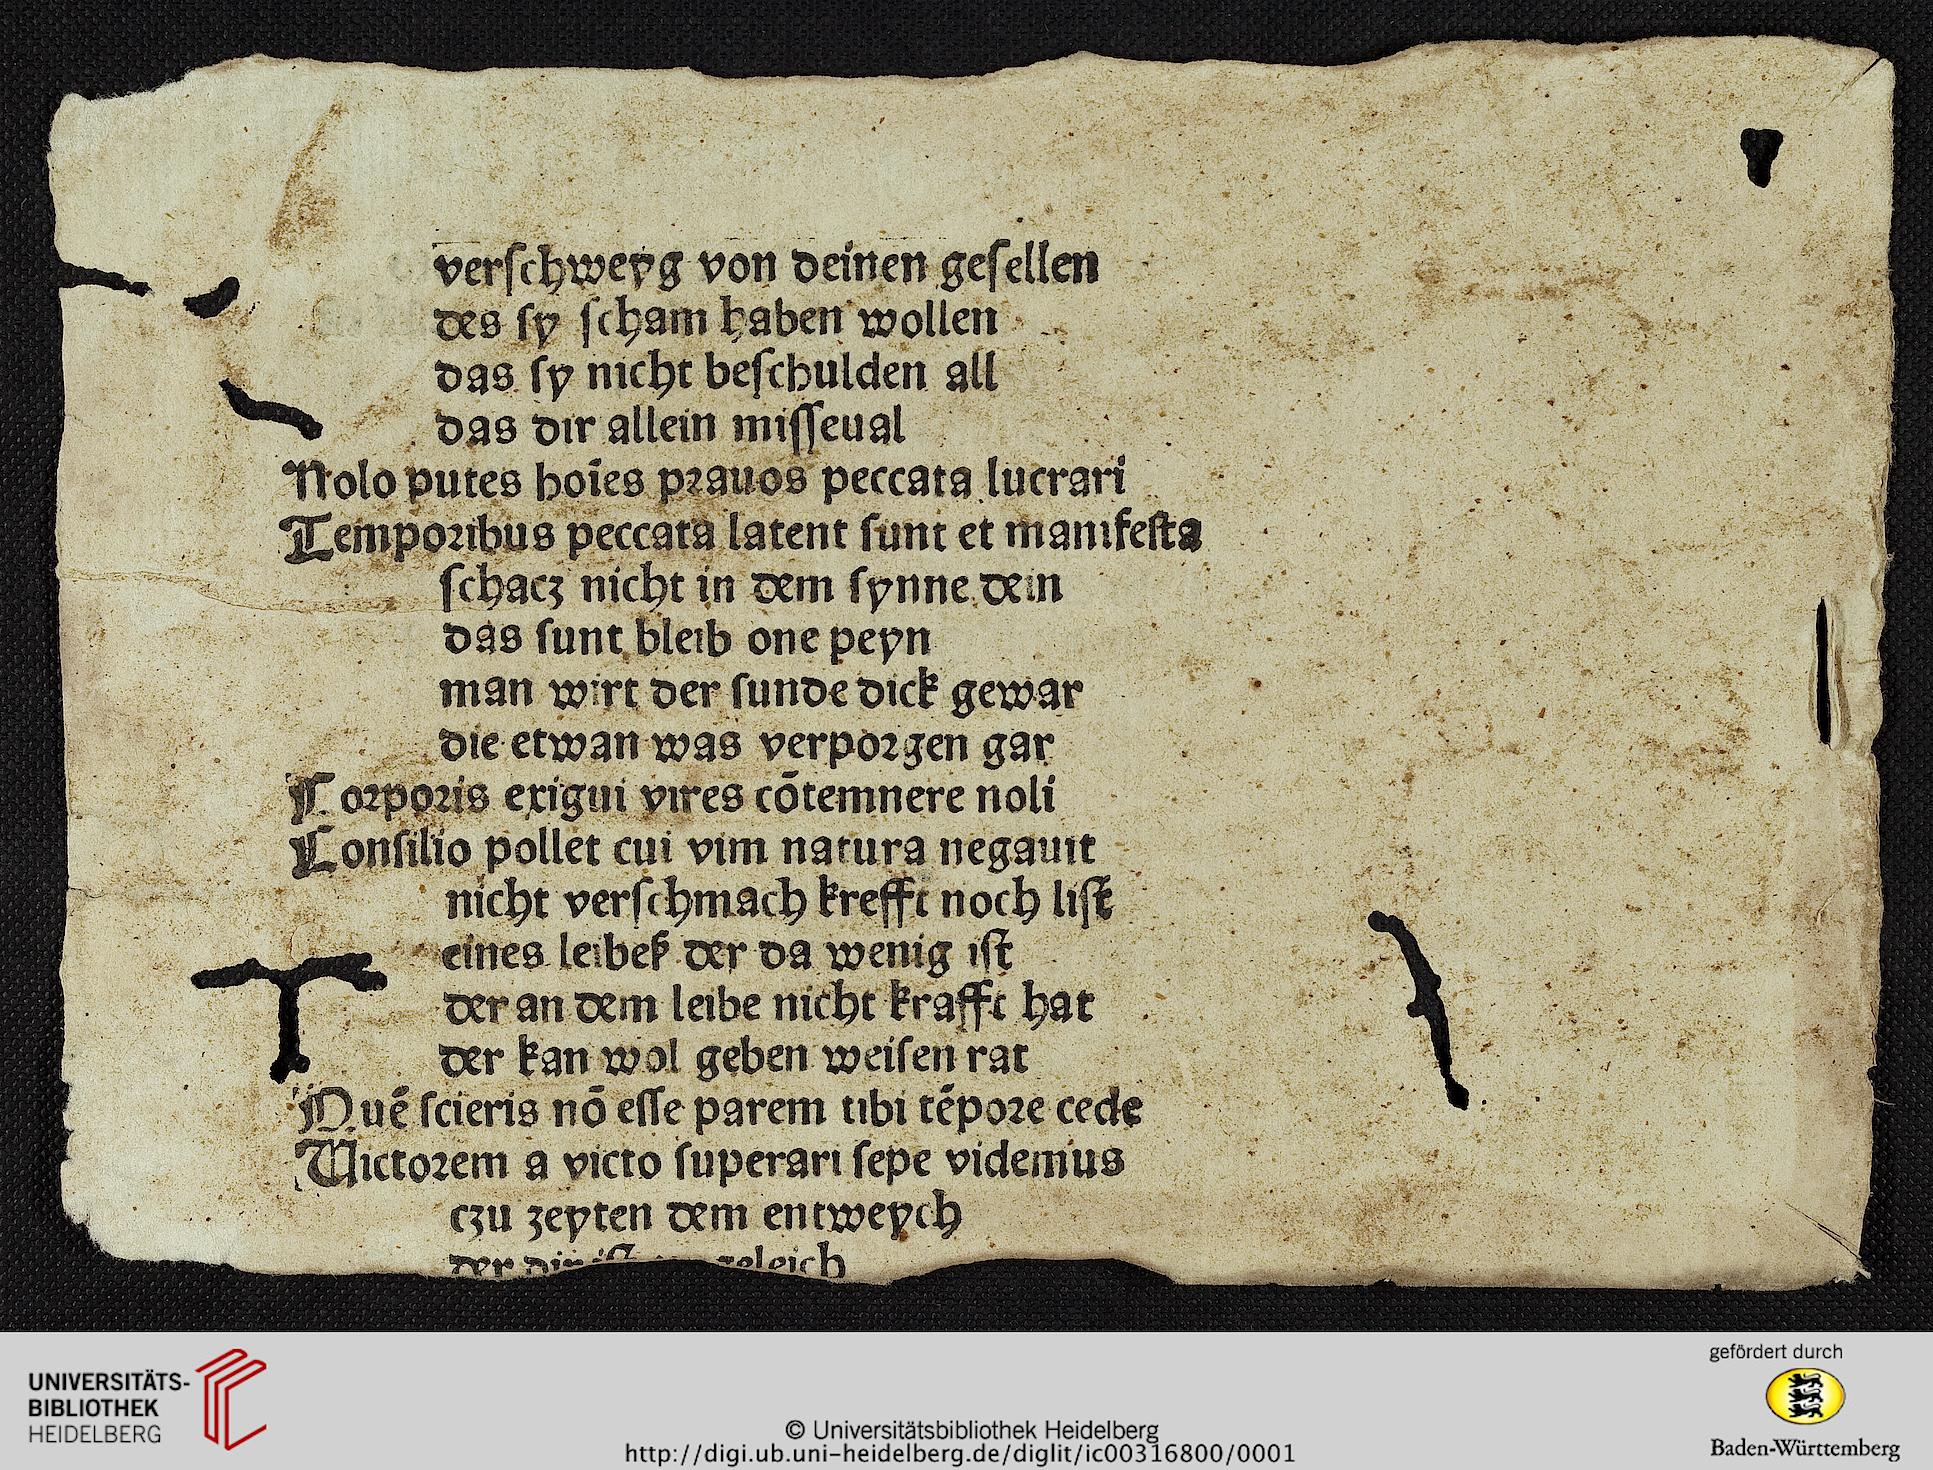 verſchweyg von deinen geſellen
des ſy ſcham haben wollen
das ſy nicht beſchulden all
das dir allein miſſeual
Nolo putes hoīes prauos peccata lucrari
Temporibus peccata latent ſunt et manifeſta
ſchacz nicht in dem ſynne dein
das ſunt bleib one peyn
man wirt der ſunde dick gewar
die etwan was verporgen gar
Corporis exigui vires cōtemnere noli
Conſilio pollet cui vim natura negauit
nicht verſchmach krefft noch liſt
eines leibeß der da wenig iſt
der an dem leibe nicht krafft hat
der kan wol geben weiſen rat
Quē ſcieris nō eſſe parem tibi tēpore cede
Victorem a victo ſuperari ſepe videmus
czu zeyten dem entweych
der dir iſt geleich
UNIVERSITÄTS-
BIBLIOTHEK
HEIDELBERG
© Universitätsbibliothek Heidelberg
http://digi.ub.uni-heidelberg.de/diglit/ic00316800/0001
gefördert durch
Baden-Württemberg